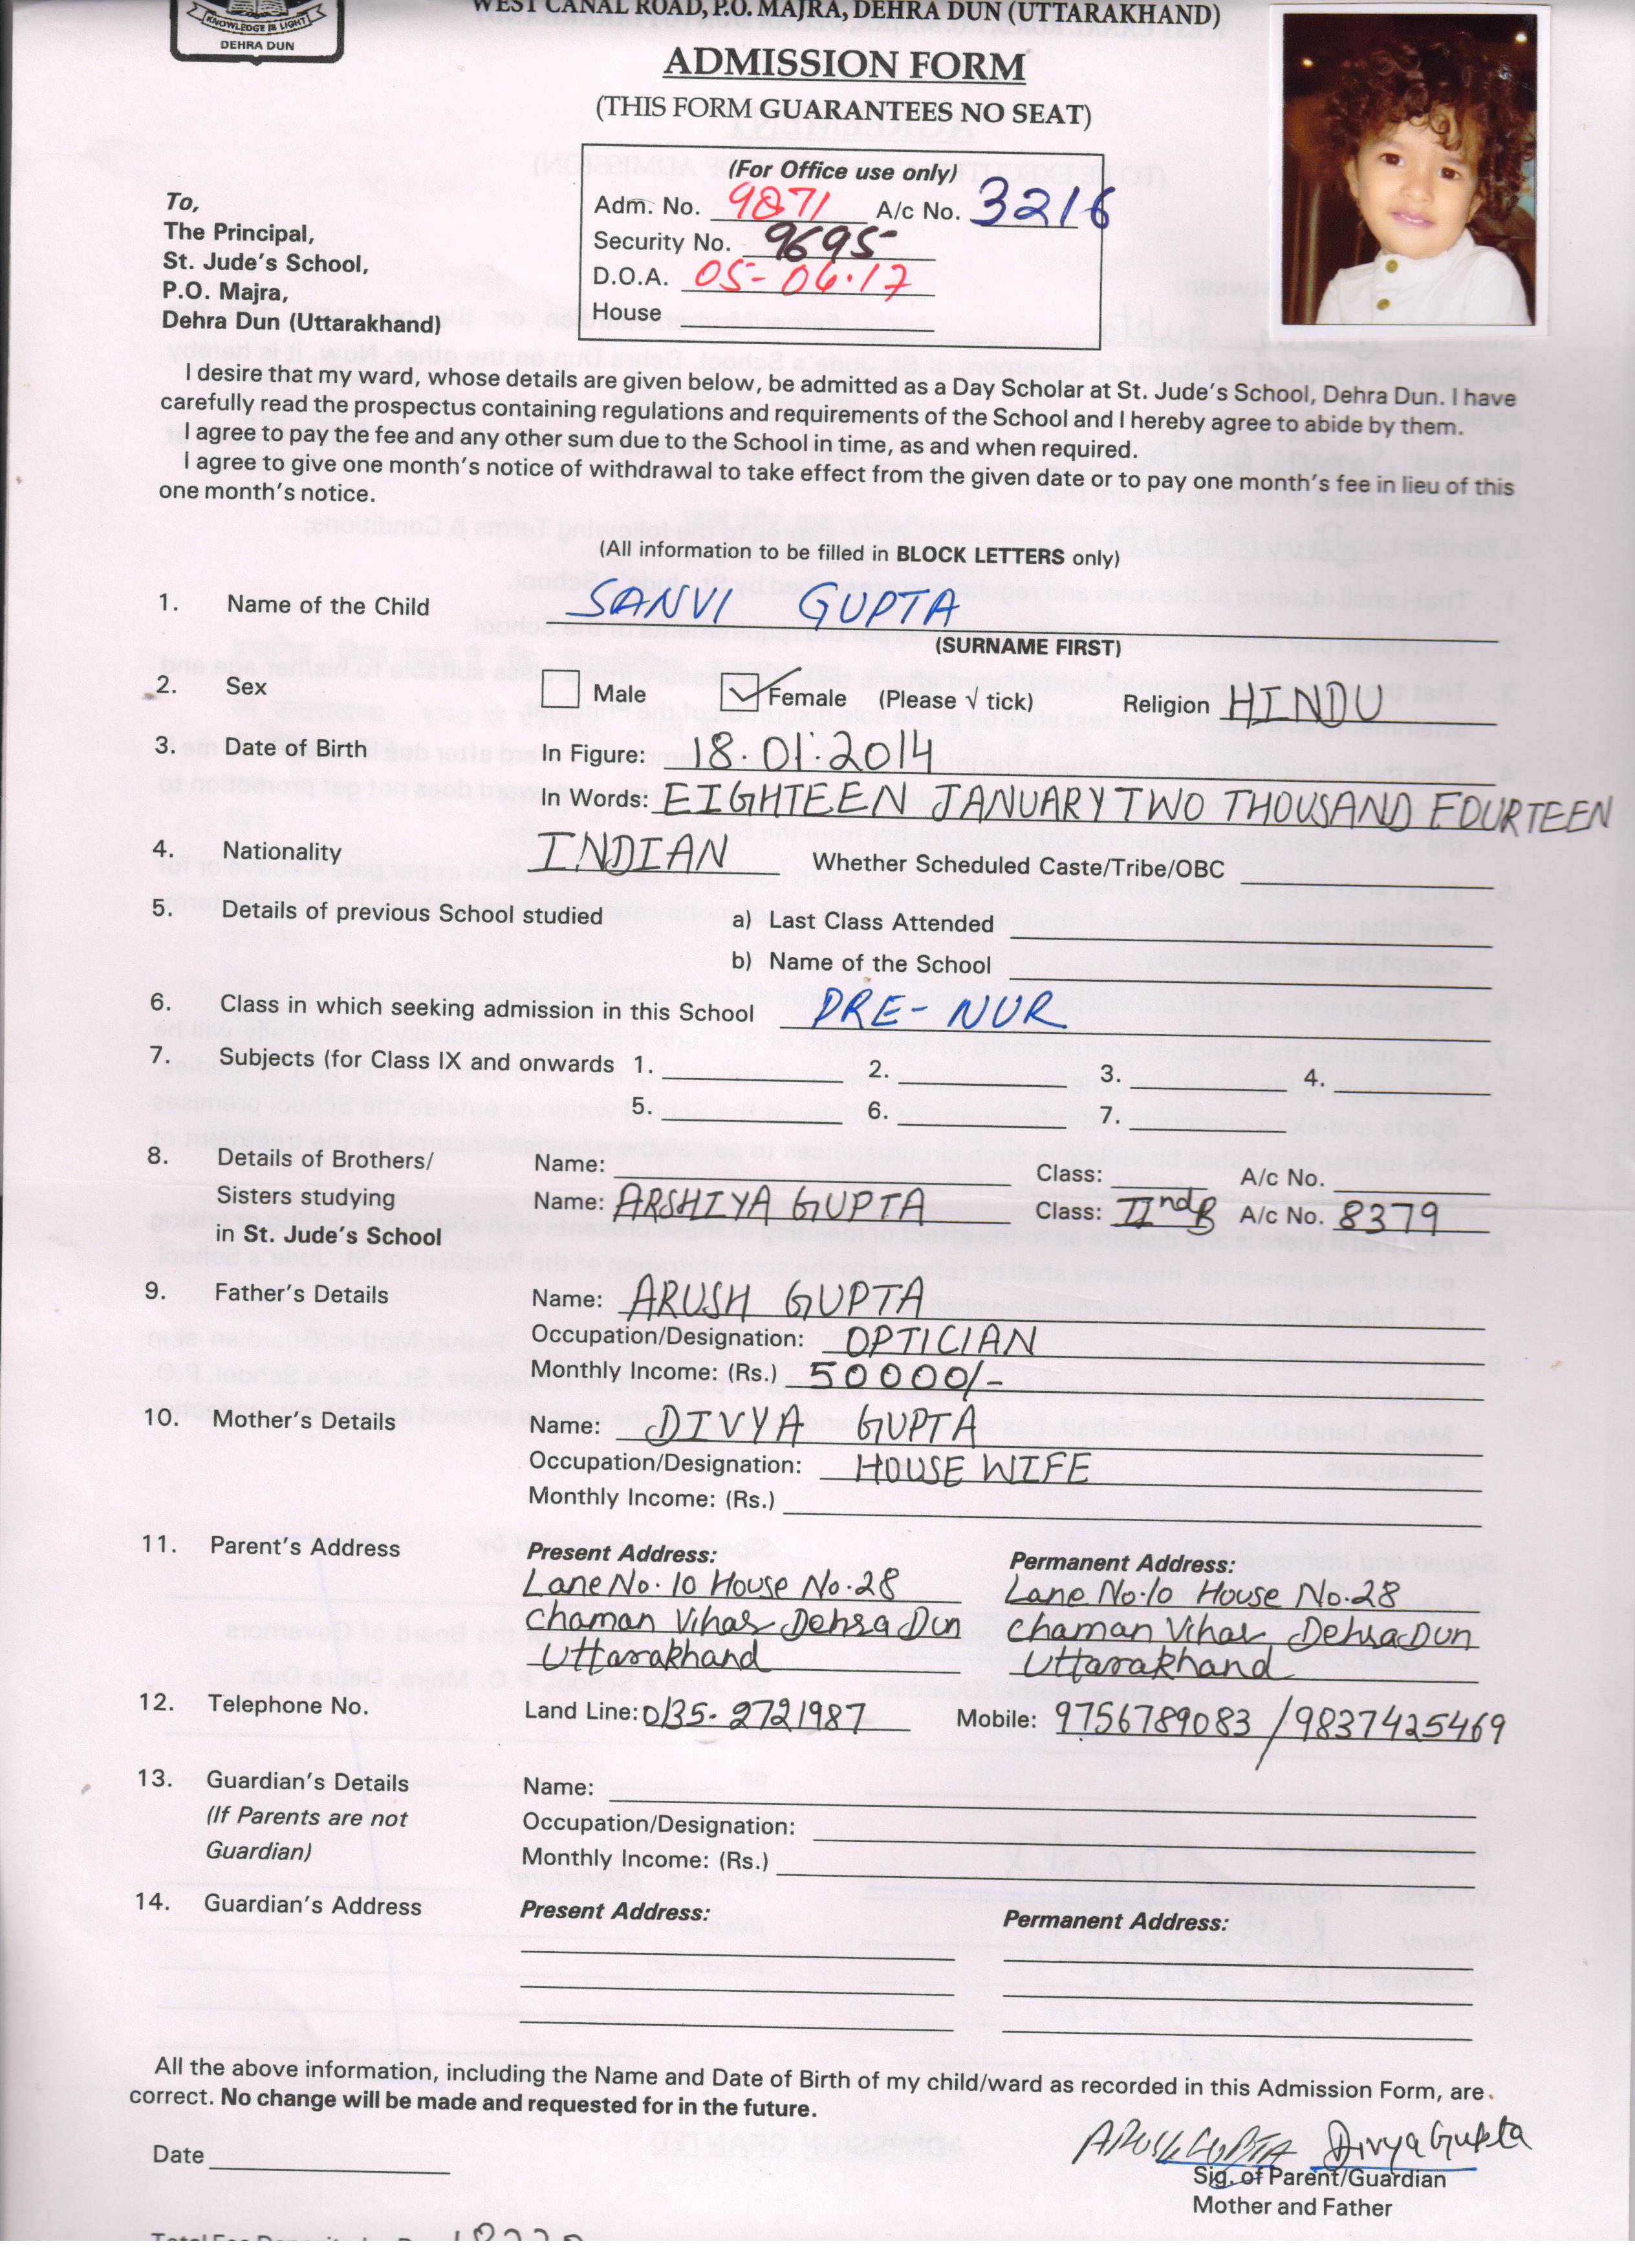 KNOWLEDGE IS LIGHT
DEHRA DUN
WEST CANAL ROAD, P.O. MAJRA, DEHRA DUN (UTTARAKHAND)
ADMISSION FORM
(THIS FORM GUARANTEES NO SEAT)
(For Office use only)
Adm. No. 9871 A/c No. 3216
Security No. 9695
D.O.A. 05-04.17
House
To,
The Principal,
St. Jude's School,
P.O. Majra,
Dehra Dun (Uttarakhand)
I desire that my ward, whose details are given below, be admitted as a Day Scholar at St. Jude's School, Dehra Dun. I have
carefully read the prospectus containing regulations and requirements of the School and I hereby agree to abide by them.
I agree to pay the fee and any other sum due to the School in time, as and when required.
I agree to give one month's notice of withdrawal to take effect from the given date or to pay one month's fee in lieu of this
one month's notice.
(All information to be filled in BLOCK LETTERS only)
1. Name of the Child SANVI GUPTA
(SURNAME FIRST)
2. Sex Male Female (Please √ tick) Religion HINDU
3. Date of Birth In Figure: 18.01.2014
In Words: EIGHTEEN JANUARY TWO THOUSAND FOURTEEN
4. Nationality INDIAN Whether Scheduled Caste/Tribe/OBC
5. Details of previous School studied a) Last Class Attended
b) Name of the School
6. Class in which seeking admission in this School PRE-NUR
7. Subjects (for Class IX and onwards 1. 2. 3. 4.
5. 6. 7.
8. Details of Brothers/ Name: Class: A/c No.
Sisters studying Name: ARSHIYA GUPTA Class: IIndB A/c No. 8379
in St. Jude's School
9. Father's Details Name: ARUSH GUPTA
Occupation/Designation: OPTICIAN
Monthly Income: (Rs.) 50000/-
10. Mother's Details Name: DIVYA GUPTA
Occupation/Designation: HOUSE WIFE
Monthly Income: (Rs.)
11. Parent's Address Present Address: Permanent Address:
Lane No. 10 House No. 28 Lane No.10 House No. 28
Chaman Vihar Dehra Dun Chaman Vihar, Dehra Dun
Uttarakhand Uttarakhand
12. Telephone No. Land Line: 0135-2721987 Mobile: 9756789083 / 9837425469
13. Guardian's Details Name:
(If Parents are not Occupation/Designation:
Guardian) Monthly Income: (Rs.)
14. Guardian's Address Present Address: Permanent Address:
All the above information, including the Name and Date of Birth of my child/ward as recorded in this Admission Form, are
correct. No change will be made and requested for in the future.
ARUSH GUPTA Divya Gupta
Date Sig. of Parent/Guardian
Mother and Father